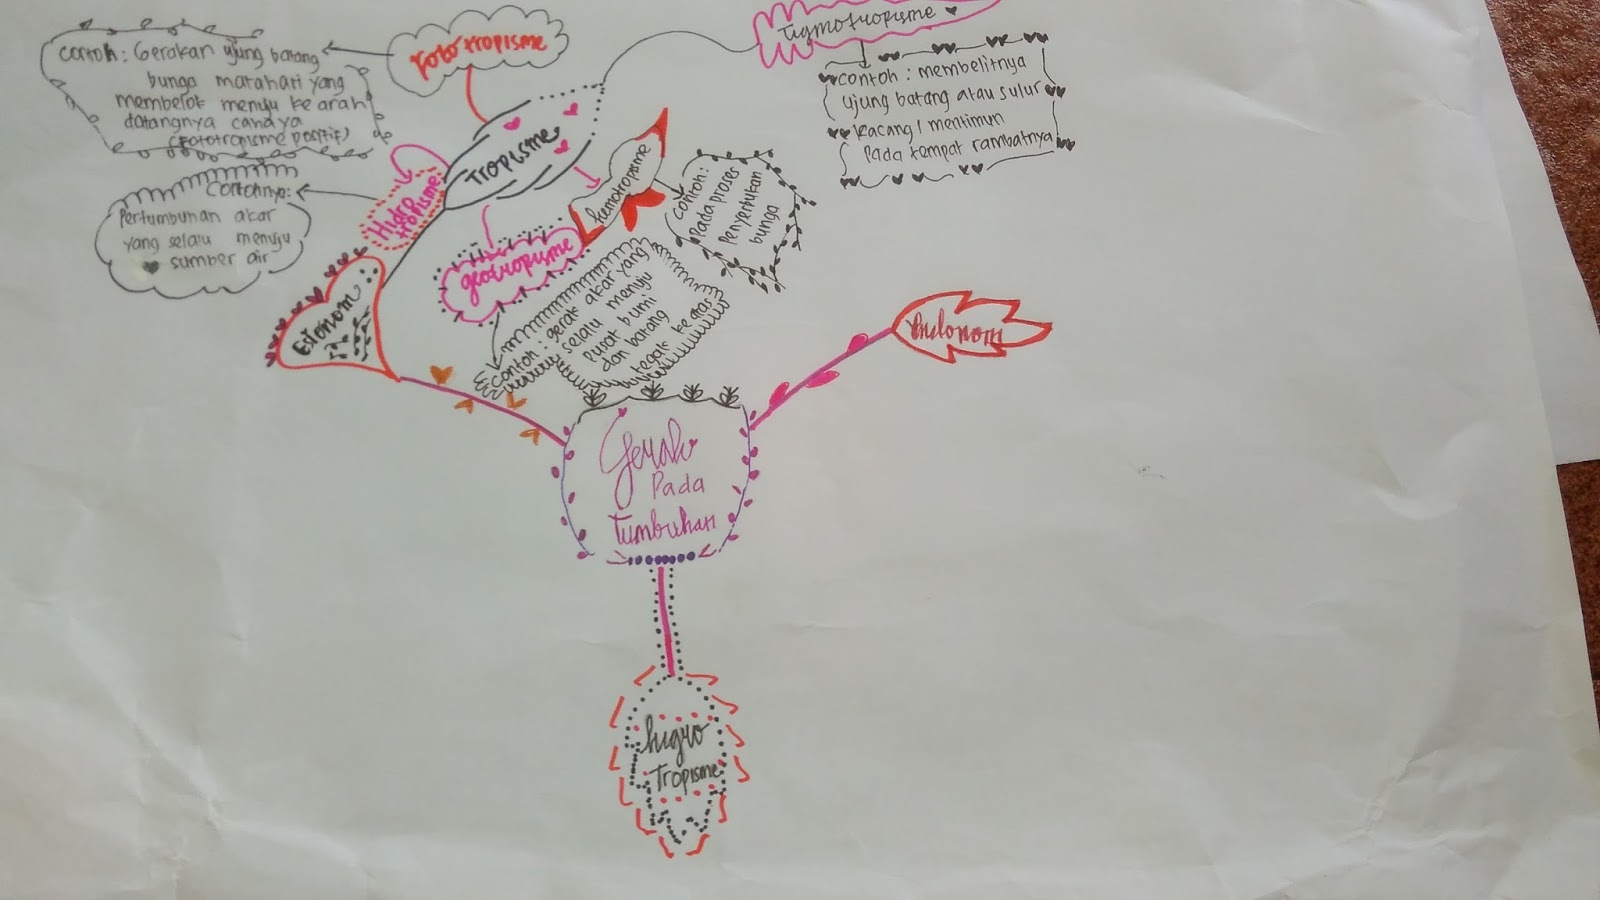 Fototropisme
contoh: Gerakan ujung batang
bunga matahari yang
membelok menuju ke arah
datangnya cahaya
(Fototropisme positif)
Tigmotropisme
contoh: membelitnya
ujung batang atau sulur
kacang / mentimun
pada tempat rambatnya
Tropisme
kemotropisme
contoh:
Pada proses
Penyerbukan
bunga
Hidro
tropisme
Contohnya:
Pertumbuhan akar
yang selalu menuju
sumber air
geotropisme
contoh: gerak akar yang
selalu menuju
pusat bumi
dan batang
tegak ke atas
Esionom
Endonom
Gerak
Pada
Tumbuhan
higro
Tropisme